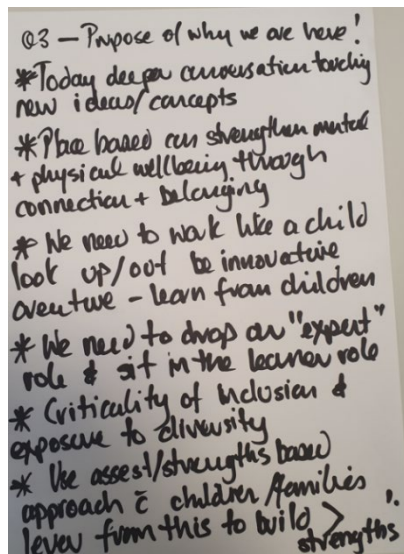 Q3 – Purpose of why we are here!
*Today deeper conversation touching
new ideas/concepts
*Place based can strengthen mental
+ physical wellbeing through
connection + belonging
* We need to walk like a child
look up/out be innovative
- learn from children
* We need to drop our "expert"
role & sit in the learner role
* Criticality of Inclusion &
exposure to diversity
* Use assest/strengths based
approach c̄ children/families
lever from this to build >
strengths